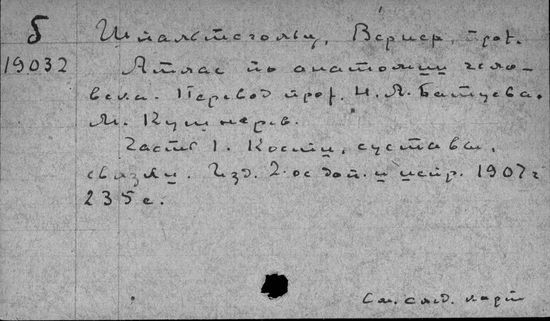 Б Шпальтегольц, Вернер, проф.
19032 Атлас по анатомии чело-
века. Перевод проф. Н. А. Батуева.
М. Кушнерев.
Часть 1. Кости, суставы,
связки. Изд. 2-ое доп. и испр. 1907 г
235 с.
См. след. карт